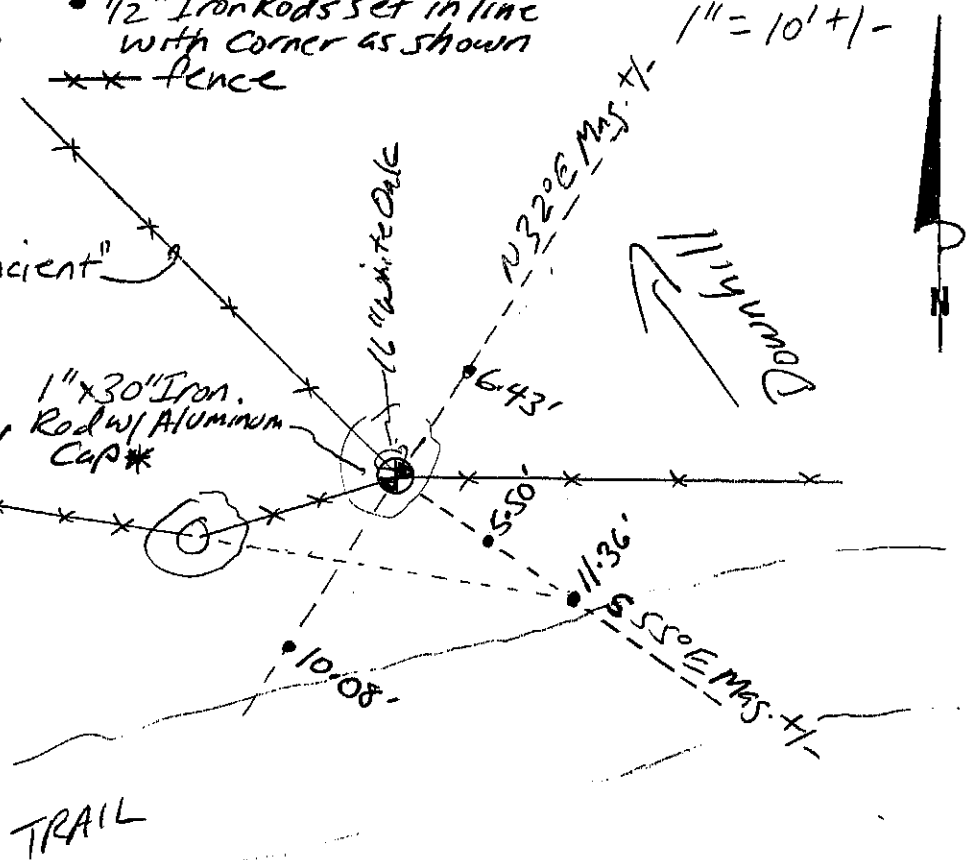 1/2" Iron Rods set in line
with Corner as shown
fence
1" = 10' +/-
N 32° E Mag. +/-
16" White Oak
Downhill
N
cient"
1" x 30" Iron
Rod w/ Aluminum
Cap *
6.43'
5.50'
11.36'
S 55° E Mag. +/-
10.08'
TRAIL